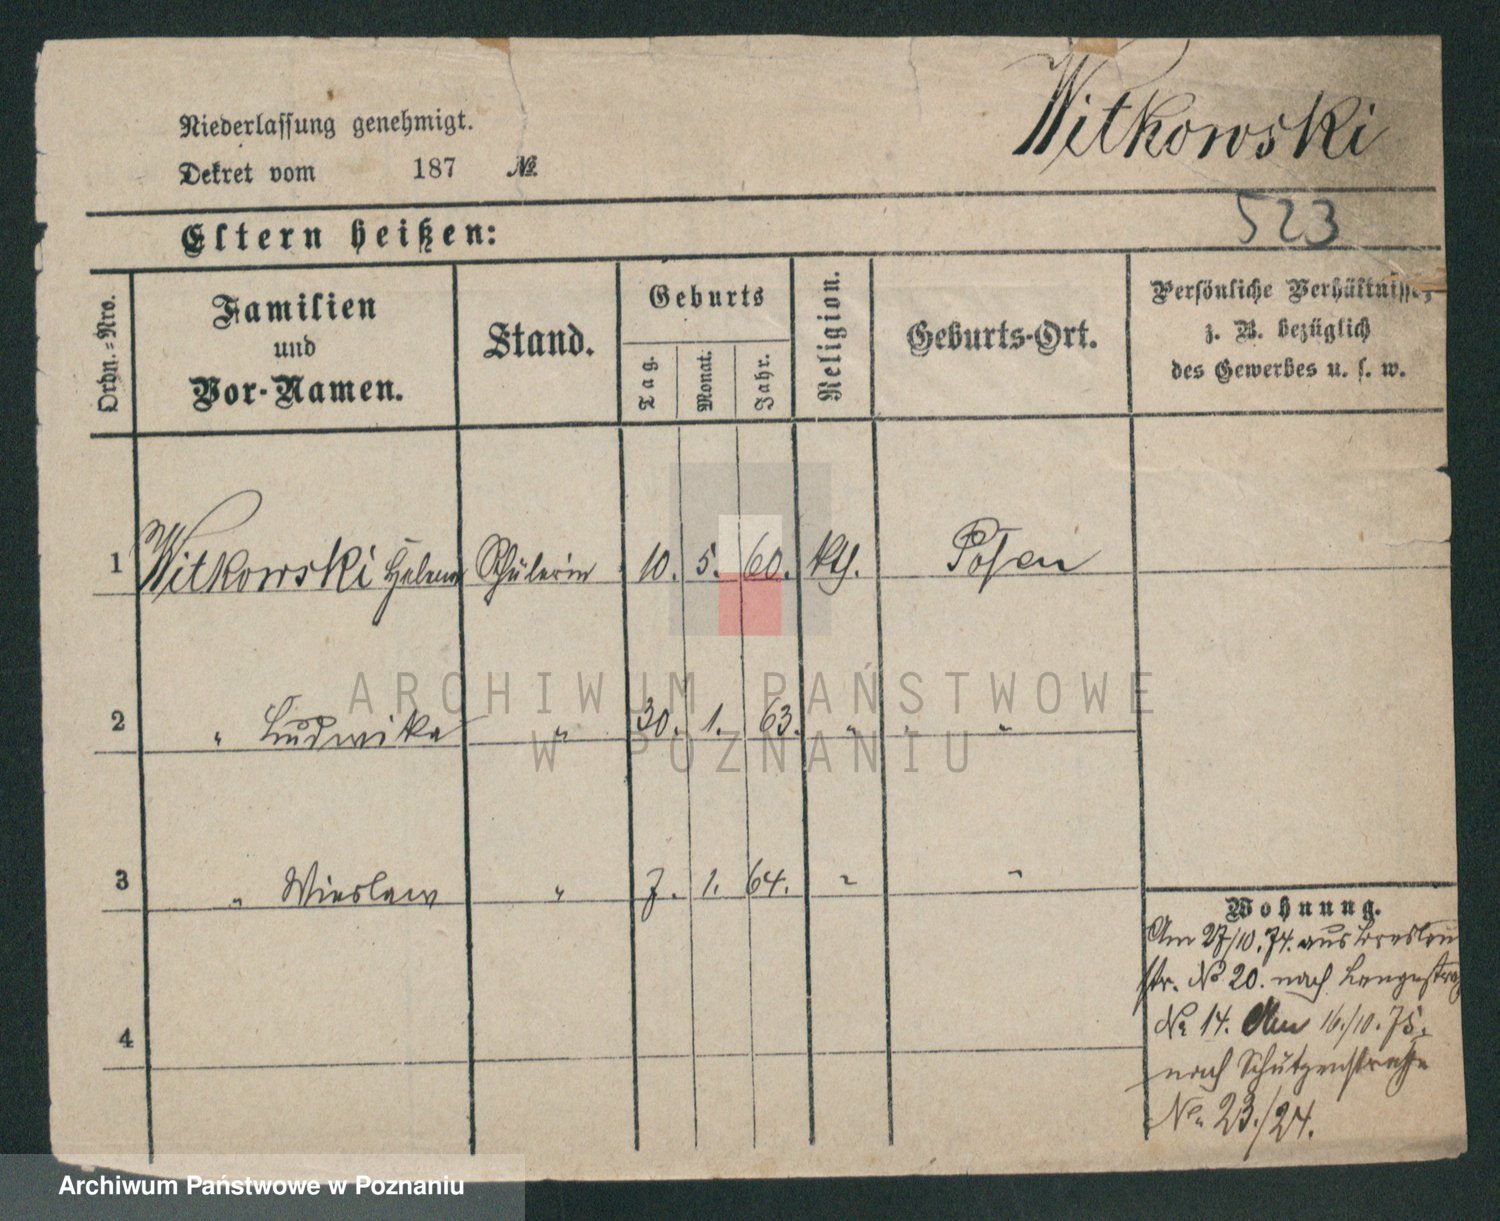 Witkowski
Niederlassung genehmigt.
Dekret vom 187 №
523
Eltern heißen:
Ordn.-Nro.
Familien
und
Vor-Namen.
Stand.
Geburts
Tag.
Monat.
Jahr.
Religion.
Geburts-Ort.
Persönliche Verhältnisse,
z. B. bezüglich
des Gewerbes u. s. w.
1 Witkowski Helena Schülerin 10. 5. 60. kth. Posen
2 " Ludwika " 30. 1. 63. " "
3 " Wieslaw " 7. 1. 64. " "
4
Wohnung.
Am 27/10. 74. aus Breslau
str. № 20. nach Langestraß
№ 14. Am 16./10. 75.
nach Schützenstraße
№ 23./24.
ARCHIWUM PAŃSTWOWE
W POZNANIU
Archiwum Państwowe w Poznaniu